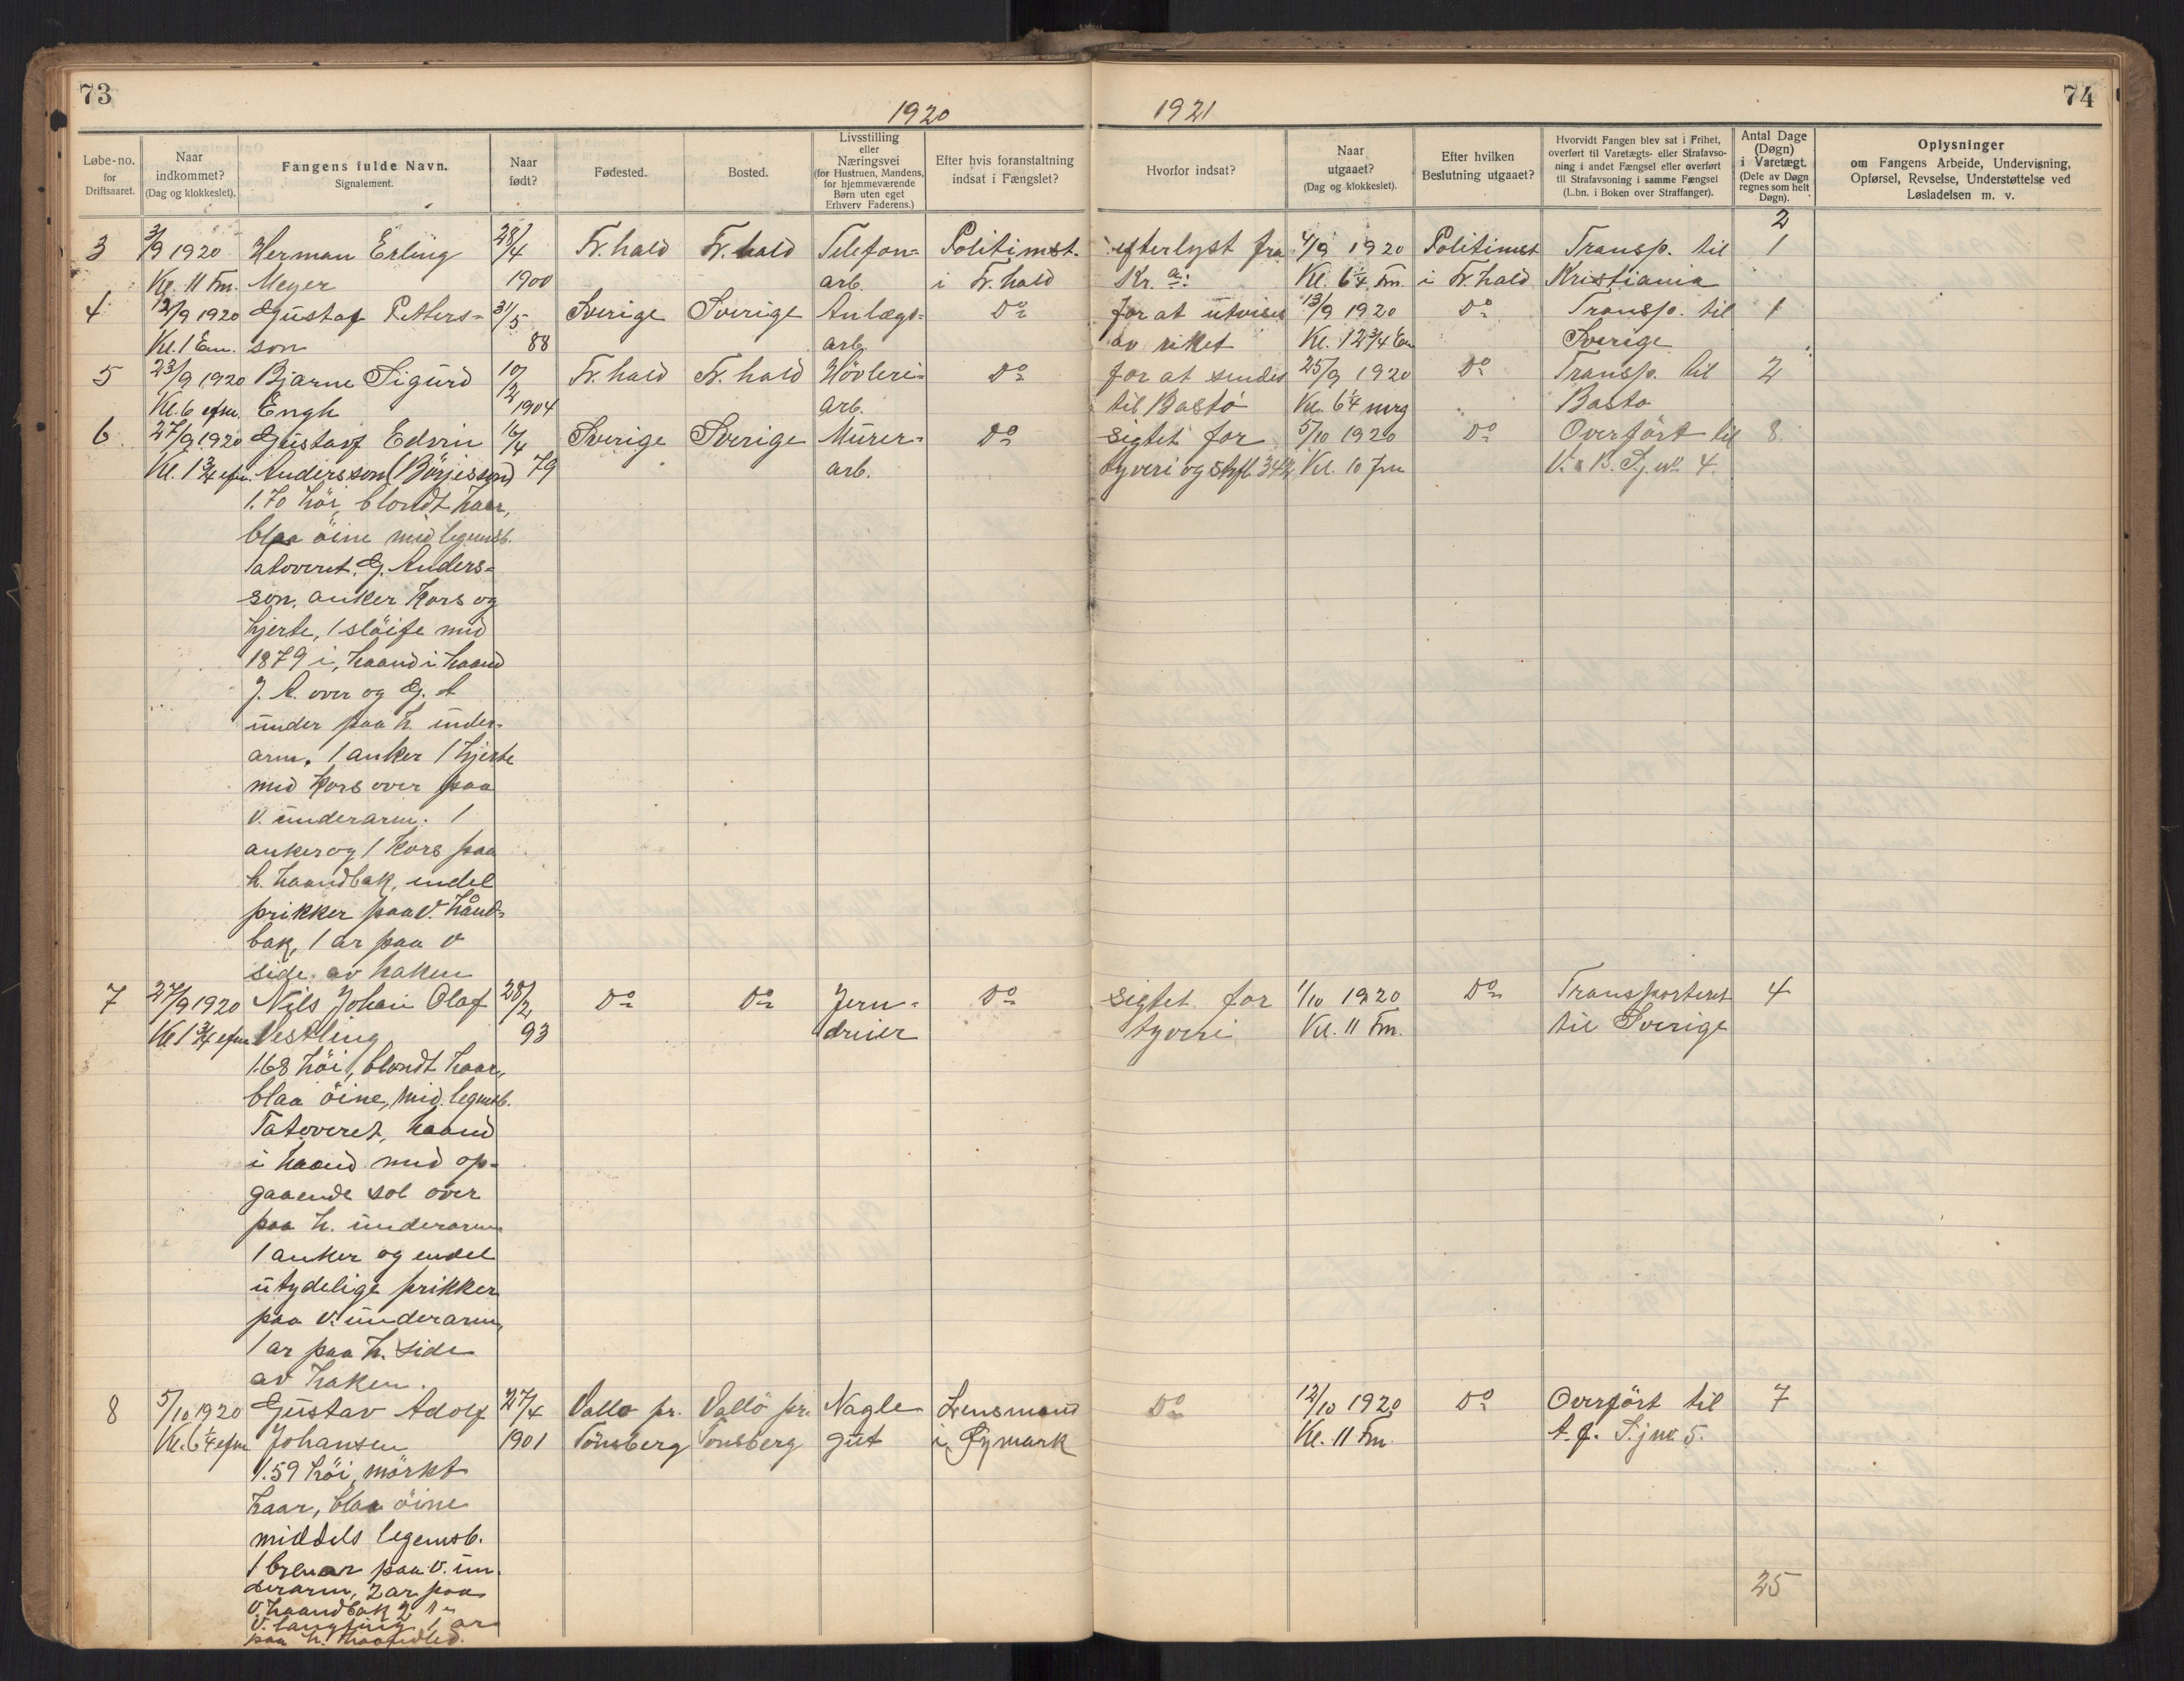 73
74
1920
1921
Løbe-no. for Driftsaaret.
Naar indkommet? (Dag og klokkeslet).
Fangens fulde Navn. Signalement.
Naar født?
Fødested.
Bosted.
Livsstilling eller Næringsvei (for Hustruen, Mandens, for hjemmeværende Børn uten eget Erhverv Faderens.)
Efter hvis foranstaltning indsat i Fængslet?
Hvorfor indsat?
Naar utgaaet? (Dag og klokkeslet).
Efter hvilken Beslutning utgaaet?
Hvorvidt Fangen blev sat i Frihet, overført til Varetægts- eller Strafavsoning i andet Fængsel eller overført til Strafavsoning i samme Fængsel (L.bn. i Boken over Straffanger).
Antal Dage (Døgn) i Varetægt. (Dele av Døgn regnes som helt Døgn).
Oplysninger om Fangens Arbeide, Undervisning, Opførsel, Revselse, Understøttelse ved Løsladelsen m. v.
2
3 3/9 1920 Herman Erling 28/4 Fr. hald Fr. hald Telefon- Politimst. efterlyst fra 4/9 1920 Politimst Transp. til 1
Kl. 11 Fm. Meyer 1900 arb. i Fr. hald Kr. a: Kl. 6 1/4 Fm. i Fr. hald Kristiania
4 12/9 1920 Gustaf Petters- 31/5 Sverige Sverige Anlægs- Do for at utvises 13/9 1920 Do Transp. til 1
Kl. 1 Em. son 88 arb. av riket Kl. 12 3/4 Em Sverige
5 23/9 1920 Bjarne Sigurd 10/2 Fr. hald Fr. hald Hövleri- Do for at sendes 25/9 1920 Do Transp. til 2
Kl. 6 efm. Engh 1904 arb. til Bastö Kl. 6 1/4 mrg Basto
6 27/9 1920 Gustaf Edvin 16/4 Sverige Sverige Murer- Do sigtet for 5/10 1920 Do Overfört til 8
Kl. 1 3/4 efm. Andersson (Börjesson) 79 arb. tyveri og strfl. 342 Kl. 10 Fm V. & B. Fj. no 4.
1.70 höi, blondt haar,
blaa öine mid legemsb.
Tatoveret: G. Anders-
son, anker kors og
hjerte, 1 slöife med
1879 i, haand i haand
J. A. over og G. A
under paa h. under-
arm. 1 anker 1 hjerte
med kors over paa
v. underarm. 1
anker og 1 kors paa
h. haandbak, endel
prikker paa v. hånd-
bak, 1 ar paa v
side av haken
7 27/9 1920 Nils Johan Olaf 28/2 Do Do Jern- Do sigtet for 1/10 1920 Do Transporteret 4
Kl 1 3/4 efm Vestling 93 dreier tyveri Kl. 11 Fm. til Sverige
1.68 höi, blondt haar,
blaa öine, mid. legemsb.
Tatoveret, haand
i haand med op-
gaaende sol over
paa h. underarm
1 anker og endel
utydelige prikker
paa v. underarm,
1 ar paa h. side
av haken.
8 5/10 1920 Gustav Adolf 27/4 Vallo pr. Vallö pr. Nagle Lensmand Do 12/10 1920 Do Overfört til 7
Kl. 6 1/4 efm Johansen 1901 Tönsberg Tonsberg gut i Øymark Kl. 11 Fm. A. f. Fj no 5.
1.59 höi, mörkt
haar, blaa öine
middels legemsb.
1 paa v. un-
derarm, 2 ar paa
v. haandbak 2
v. langfing 1 ar
paa h. haandled.
25